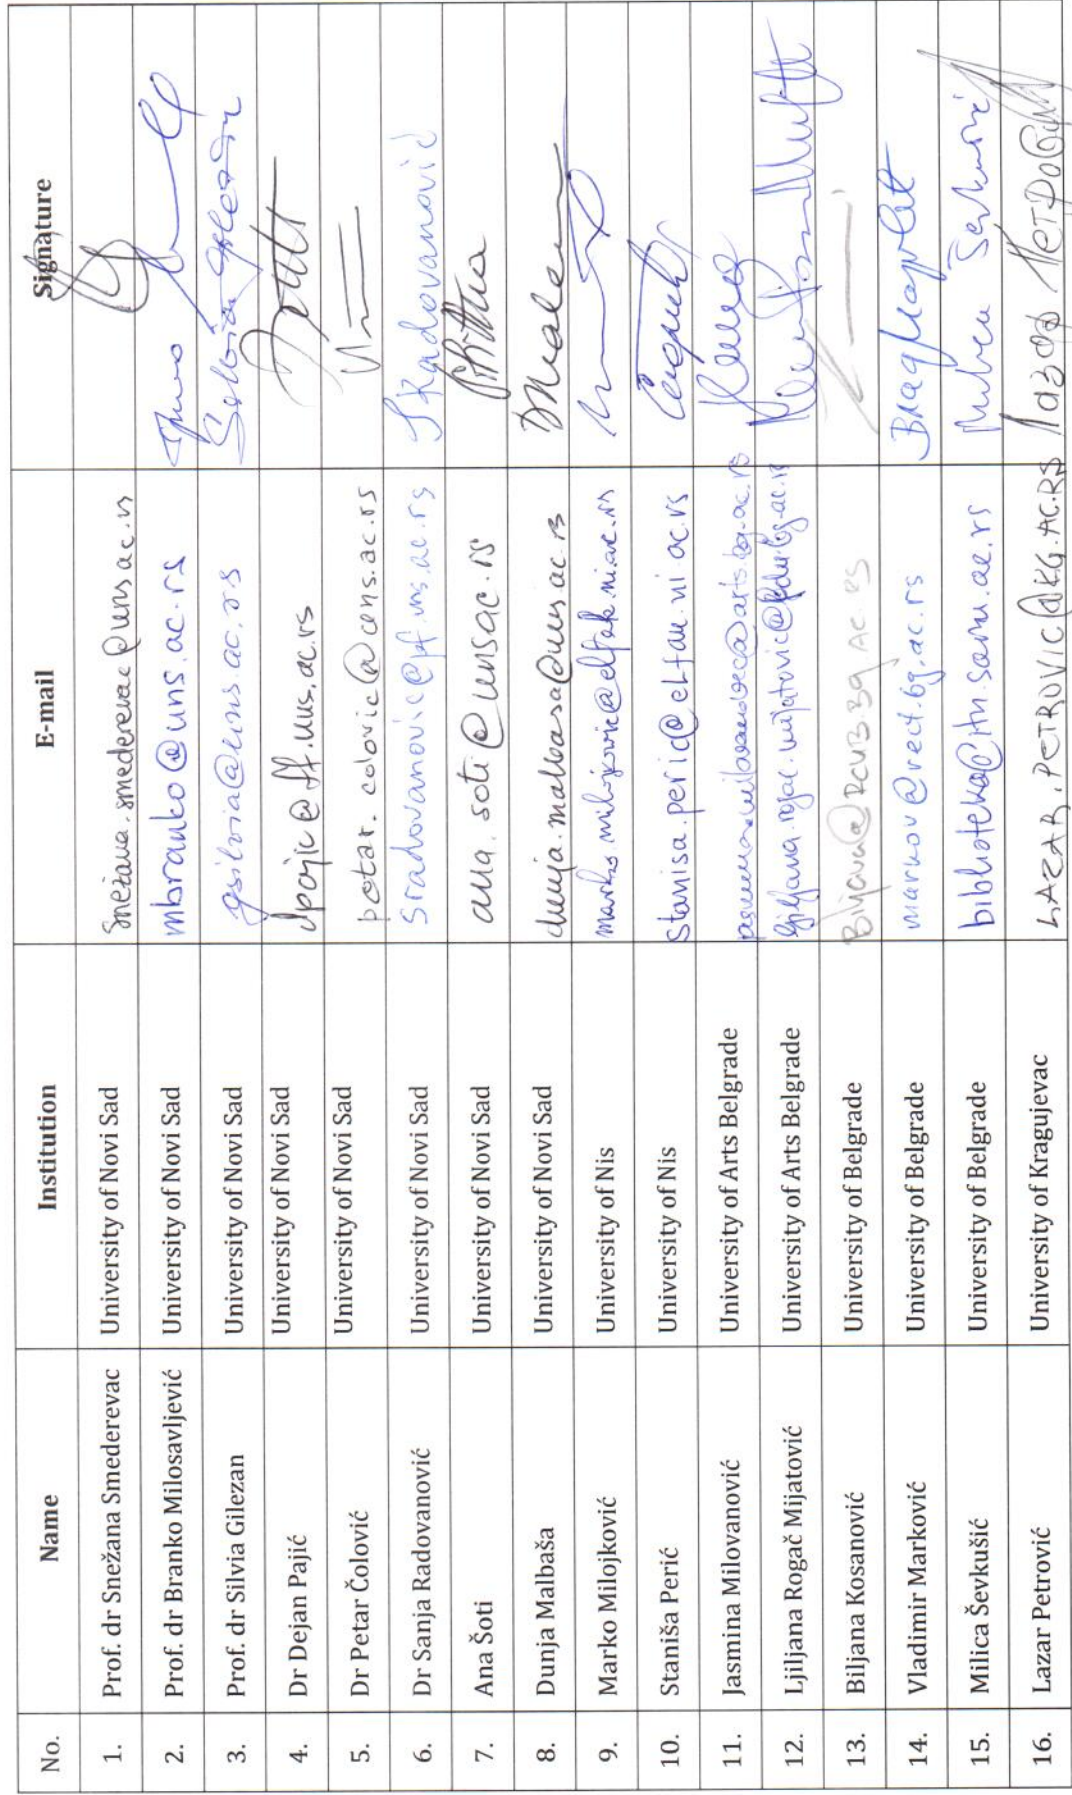 No. Name Institution E-mail Signature
1. Prof. dr Snežana Smederevac University of Novi Sad snežana.smederevac@uns.ac.rs
2. Prof. dr Branko Milosavljević University of Novi Sad mbranko@uns.ac.rs
3. Prof. dr Silvia Gilezan University of Novi Sad gsilvia@uns.ac.rs
4. Dr Dejan Pajić University of Novi Sad dpajic@ff.uns.ac.rs
5. Dr Petar Čolović University of Novi Sad petar.colovic@uns.ac.rs
6. Dr Sanja Radovanović University of Novi Sad sradovanovic@pf.uns.ac.rs SRadovanović
7. Ana Šoti University of Novi Sad ana.soti@uns.ac.rs
8. Dunja Malbaša University of Novi Sad dunja.malbasa@uns.ac.rs
9. Marko Milojković University of Nis marko.milojkovic@elfak.ni.ac.rs
10. Staniša Perić University of Nis stanisa.peric@elfak.ni.ac.rs
11. Jasmina Milovanović University of Arts Belgrade
12. Ljiljana Rogač Mijatović University of Arts Belgrade ljiljana.rogac.mijatovic@fdu.bg.ac.rs
13. Biljana Kosanović University of Belgrade Biljana@RCUB.BG.AC.RS
14. Vladimir Marković University of Belgrade markov@vect.bg.ac.rs
15. Milica Ševkušić University of Belgrade biblioteka@itn.sanu.ac.rs Milica Ševkušić
16. Lazar Petrović University of Kragujevac LAZAR.PETROVIC@KG.AC.RS Лазар Петровић